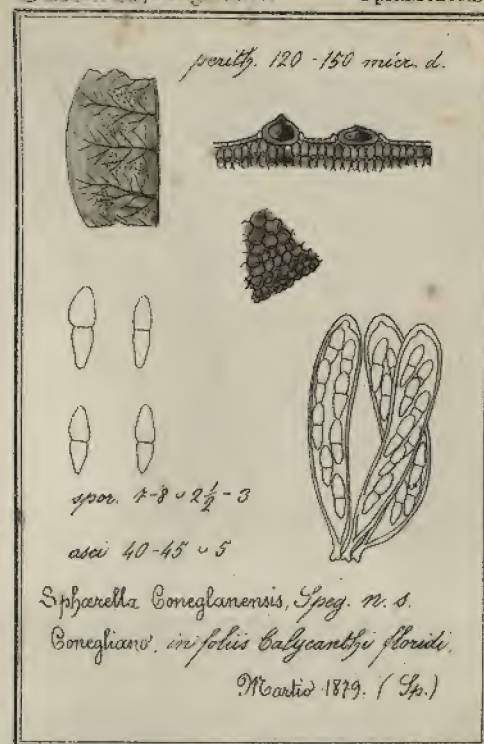 perith. 120 - 150 micr. d.
spor. 7-8 ᴗ 2½ - 3
asci 40-45 ᴗ 5
Sphærella Coneglanensis, Speg. n. s.
Conegliano, in foliis Calycanthi floridi.
Martio 1879. (Sp.)